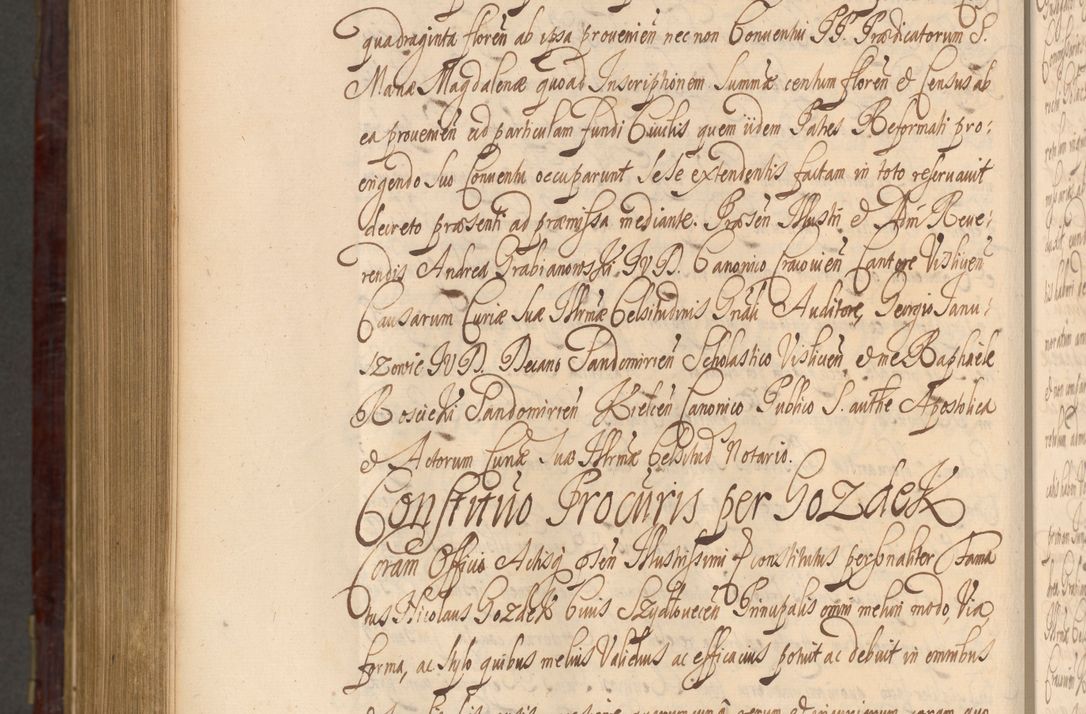 quadraginta floren ab ipsa provenien nec non Conventui PP. Prædicatorum S.
Mariæ Magdalenæ quoad Inscriptionem Summæ centum floren & Census ab
ea provenien ad particulam fundi Civilis quem iidem Patres Reformati pro:
erigendo suo Conventu occuparunt sese extendentis factam in toto reservavit
decreto præsenti ad præmissa mediante. Præsen Illustri & Adm Reve:
rendis Andrea Grabianowski JVD. Canonico Cracovien Cantore Visliçen
Causarum Curiæ Suæ Illrmæ Celsitudinis Gnali Auditore, Georgio Janu:
szowic JVD. Decano Sandomirien Scholastico Vislicien, & me Raphaele
Roscieki Sandomirien Kielcen Canonico Publico S. authe Apostolica
& Actorum Curiæ Suæ Illrmæ Celsitud Notario.
Constituo Procuris per Gozdek
Coram Officio Actisq osen Illustrissimi & constitutus personaliter Fama
tus Nicolaus Gozdek Civis Szydlovecen Principalis omni meliori modo, Via,
forma, ac stylo quibus melius Validius ac efficacius potuit ac debuit in omnibus